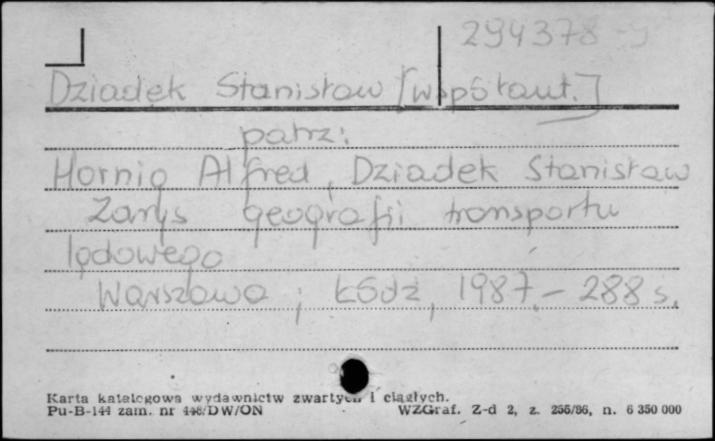 294378-
Dziadek Stanisław [współaut.]
patrz:
Hornig Alfred, Dziadek Stanisław
Zarys geografii transportu
lądowego
Warszawa ; Łódź, 1987. - 288 s.
Karta katalogowa wydawnictw zwartych i ciągłych.
Pu-B-144 zam. nr 446/DW/ON WZGraf. Z-d 2, z. 255/86, n. 6 350 000